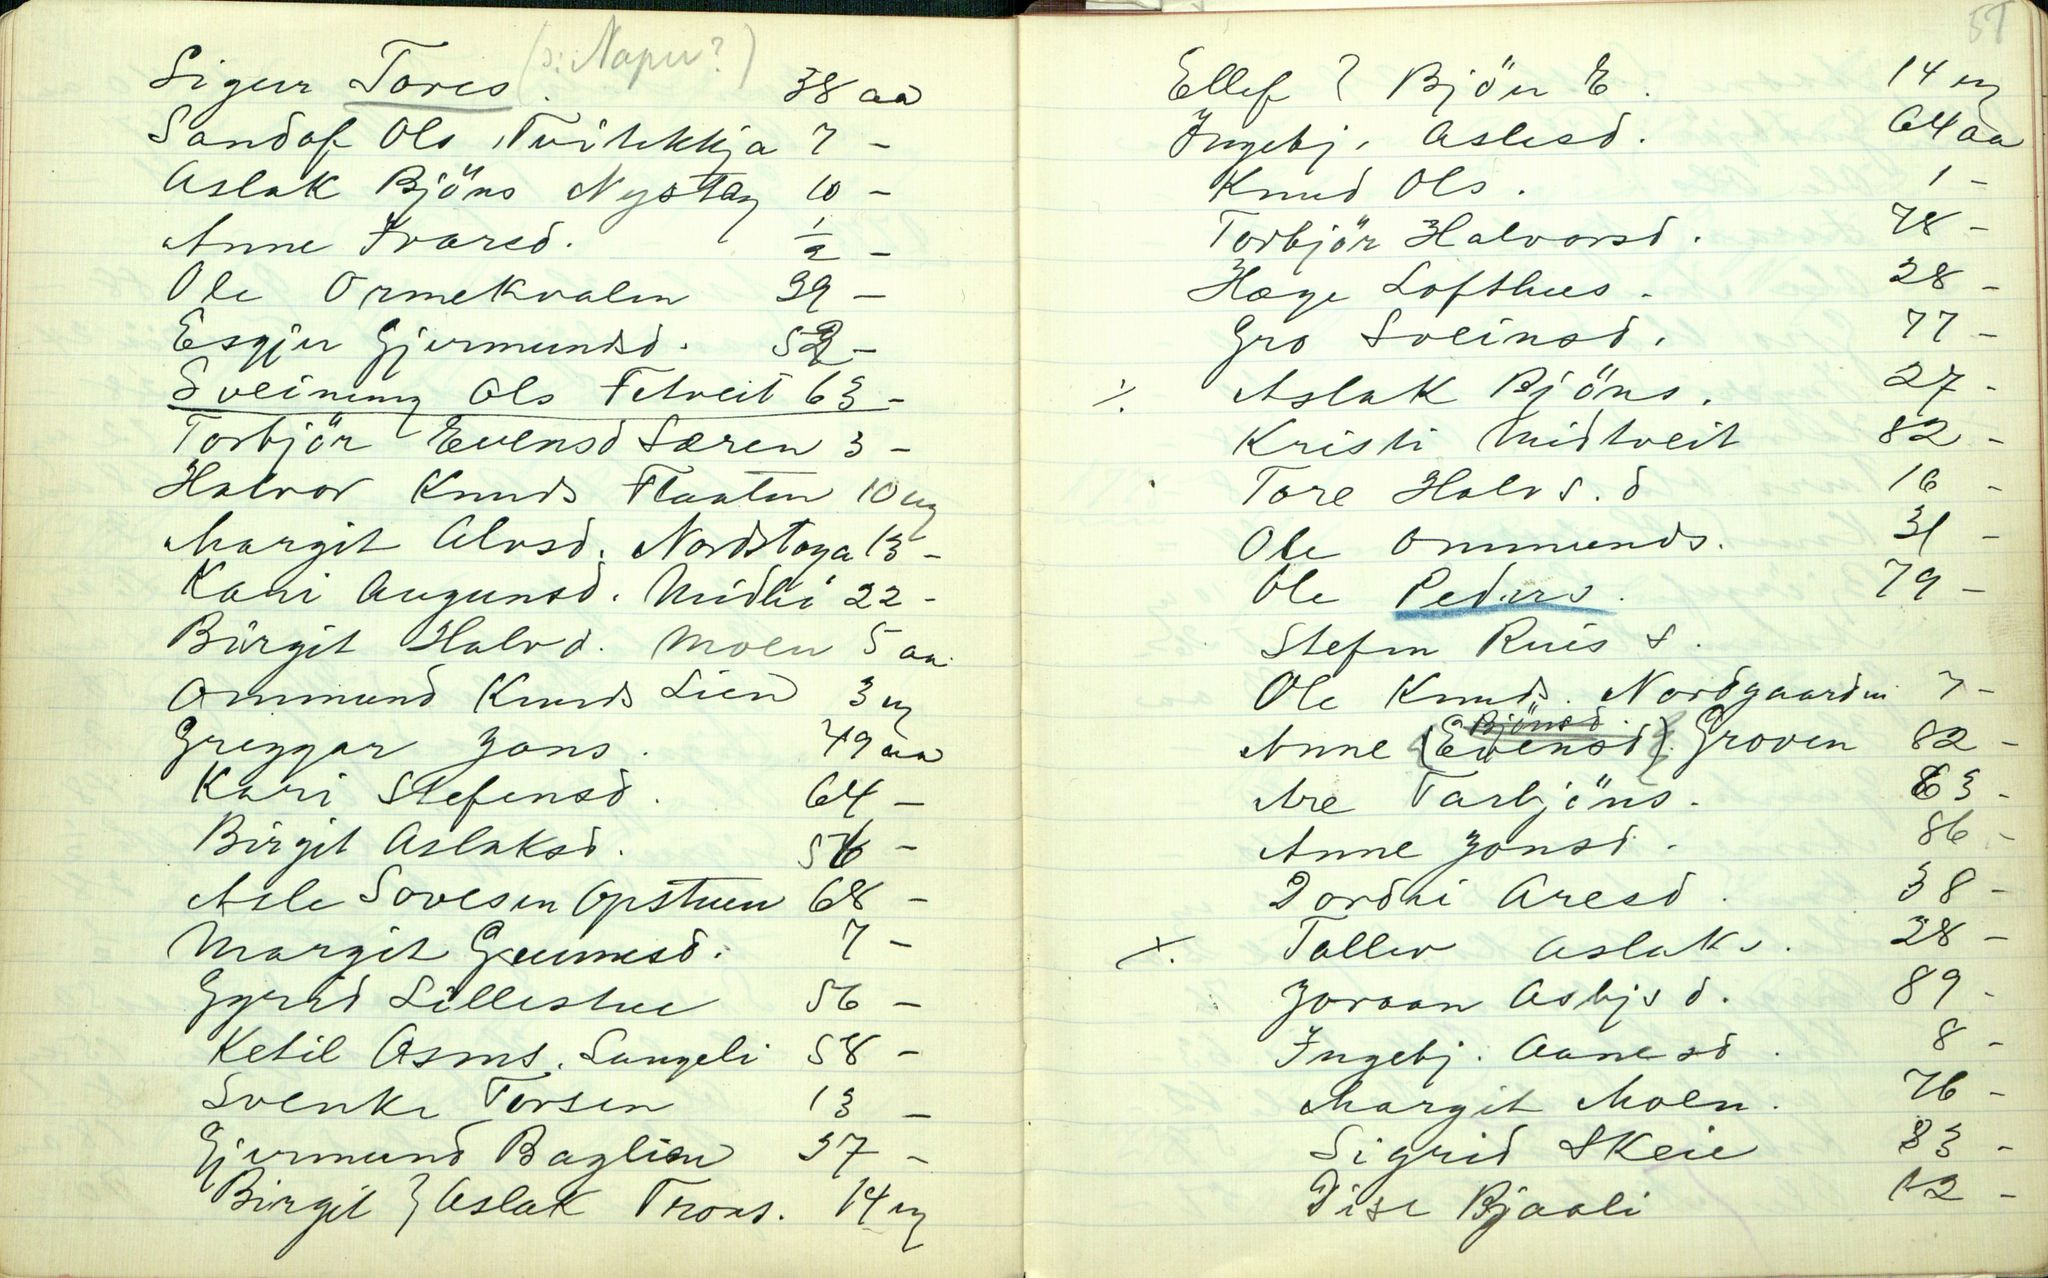 Sigur Tores (ɔ: Naper?) 38 aa
Sandof Ols Tvitekkja 7 -
Aslak Bjöns Nystøg 10 -
Anne Ivarsd. 1/2 -
Ole Ormekvalen 39 -
Esgjer Gjermundsd. 52 -
Sveinung Ols Fetveit 63 -
Torbjör Evensd Særen 3 -
Halvor Knuds Flaaten 10 ug
Margit Alvsd. Nordstoga 13 -
Kari Augunsd. Midli 22 -
Birgit Halvd. Moen 5 aa
Ommund Knuds Lien 3 ug
Greggar Jons. 49 aa
Kari Stefensd. 64 -
Birgit Aslaksd. 56 -
Asle Sovesen Opstuen 68 -
Margit Gunnesd. 7 -
Gyrid Lillestue 56 -
Ketil Asms. Langeli 58 -
Svenke Torsen 13 -
Gjermund Baglien 37 -
Birgit } Aslak Trons. 14 ug
51
Ellef } Bjön E. 14 ug
Ingebj. Aslesd. 64 aa
Knud Ols. 1 -
Torbjör Halvorsd. 78 -
Hæge Lofthus. 28 -
Gro Sveinsd. 77 -
Aslak Bjöns. 27 -
Kristi Midtveit 82 -
Tore Halvs.d 16 -
Ole Ommunds. 31 -
Ole Peders. 79 -
Stefen Ruis s.
Ole Knuds. Nordgaarden 7 -
Bjönsd.
Anne (Evensd). Groven 82 -
Are Tarbjöns. 63 -
Anne Jonsd. 86 -
Dordei Aresd. 38 -
X. Tallev Aslaks. 28 -
Joraan Asbjsd. 89 -
Ingebj. Aanesd. 8 -
Margit Moen. 76 -
Sigrid Skeie 83 -
Dise Bjaali 12 -